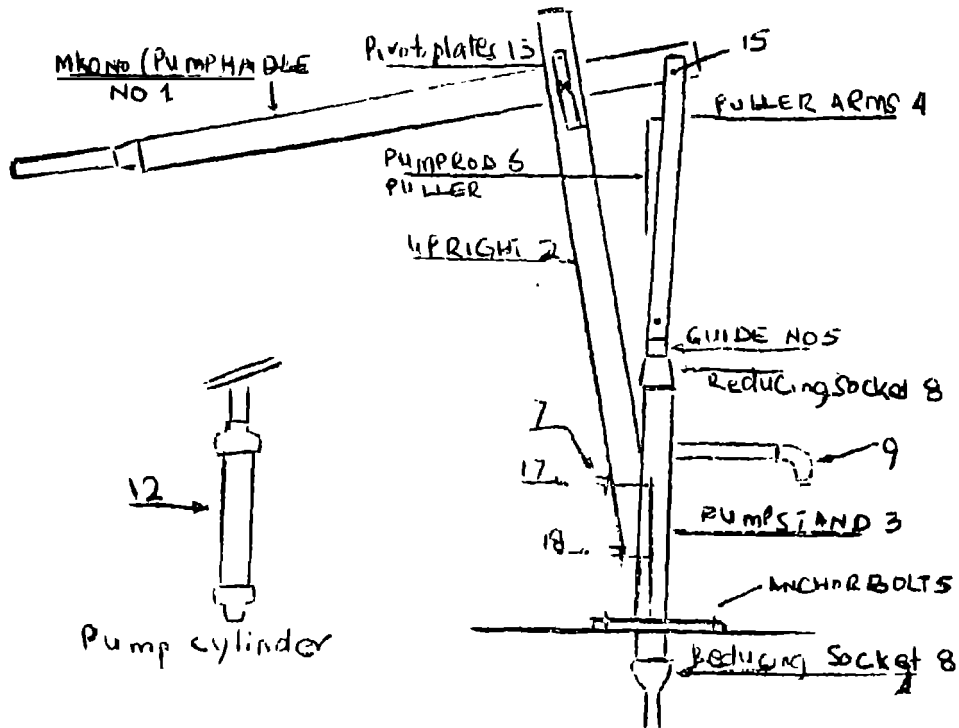 MKONO (PUMP HANDLE
NO 1
Pivot plates 13
15
PULLER ARMS 4
PUMP ROD 6
PULLER
UPRIGHT 2
GUIDE NO 5
Reducing Socket 8
7
17
18
9
PUMP STAND 3
ANCHOR BOLTS
Reducing Socket 8
12
Pump cylinder